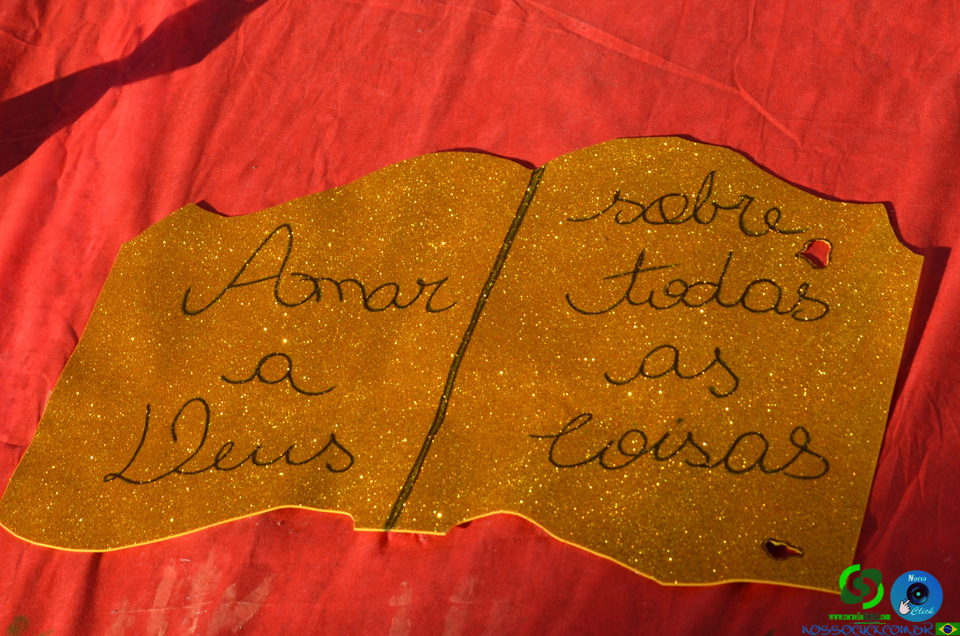 Amar
a
Deus
sobre
todas
as
Coisas
Nosso
Click
NOSSOCLICK.COM.BR